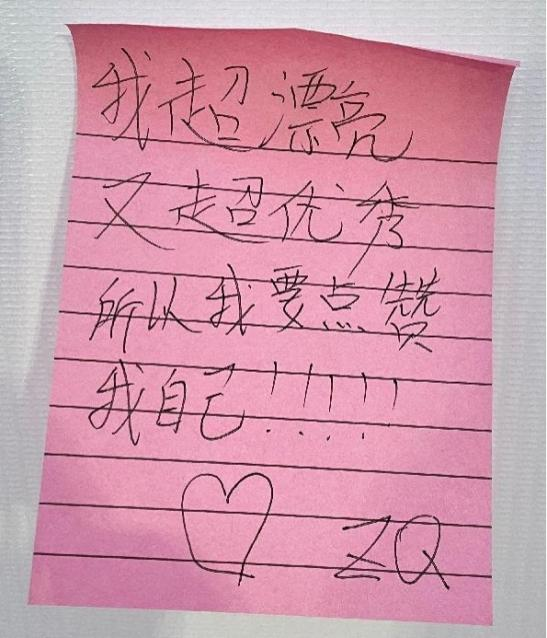 我超漂亮
又超优秀
所以我要点赞
我自己!!!!!
ZQ